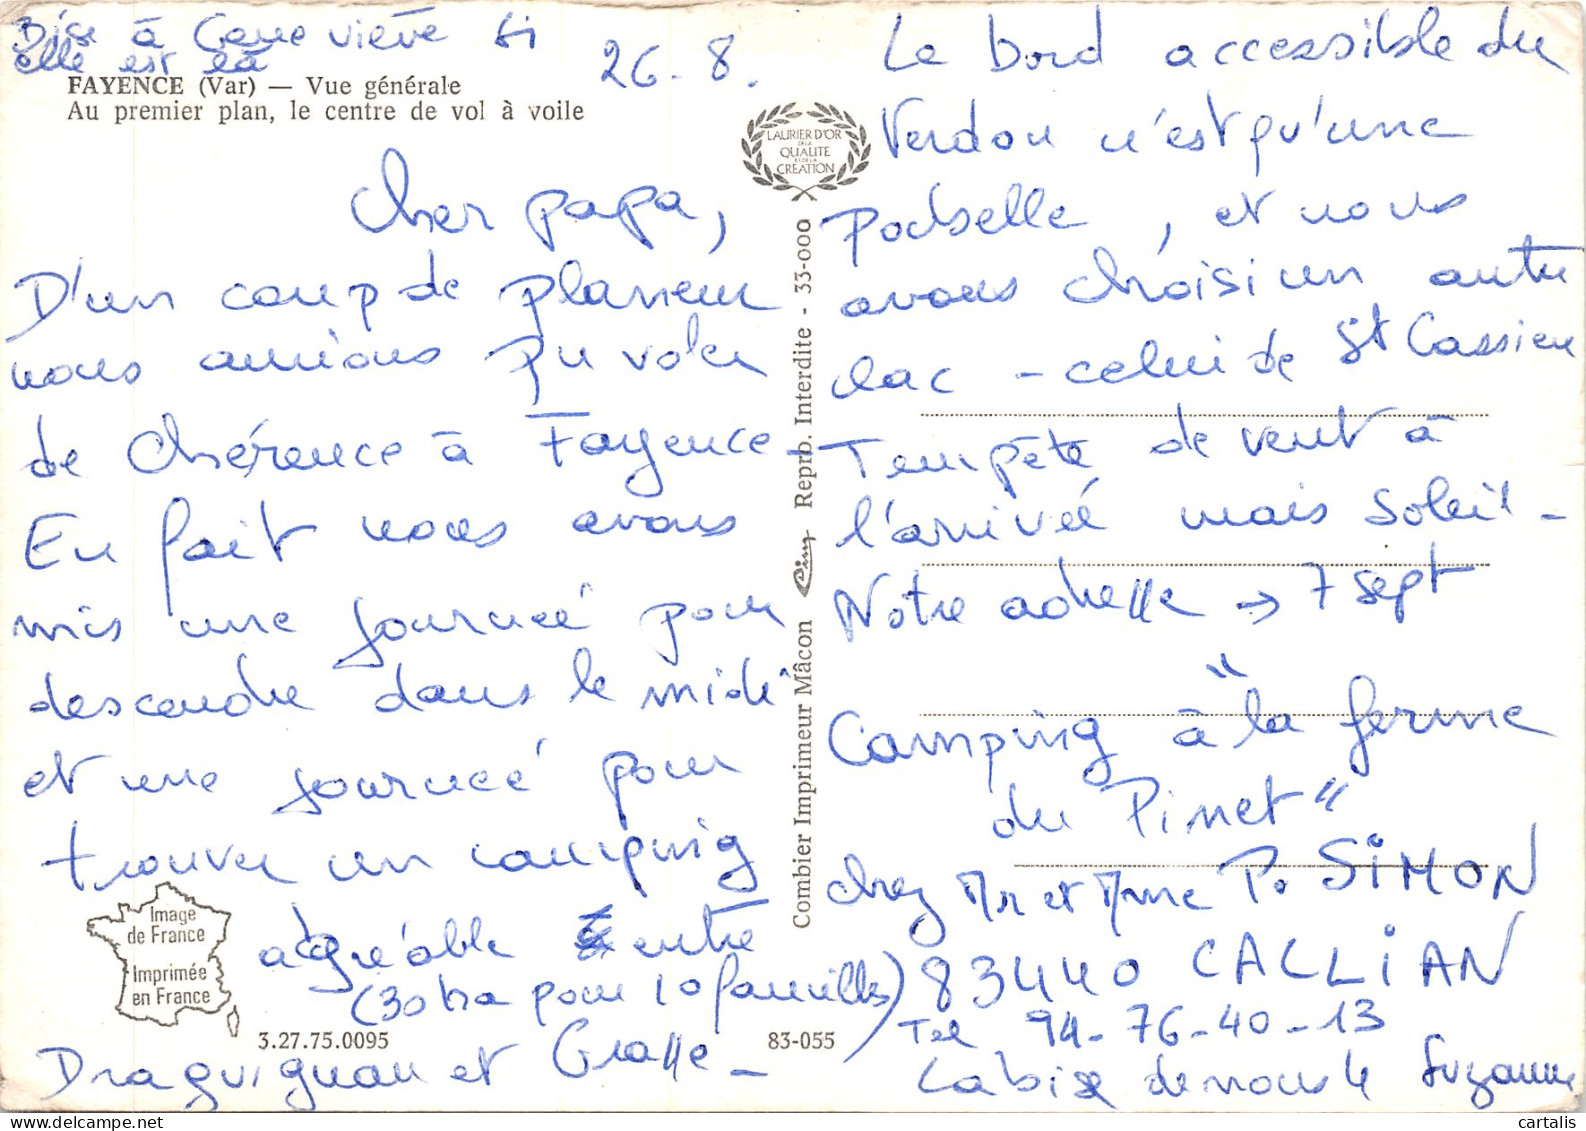 Bise à Geneviève si
elle est là
26-8.
FAYENCE (Var) — Vue générale
Au premier plan, le centre de vol à voile
Cher papa,
D'un coup de planeur
nous aurions pu voler
de Chérence à Fayence -
En fait nous avons
mis une journée pour
descendre dans le midi
et une journée pour
trouver un camping
agréable entre
(30 ha pour 10 familles)
Draguignan et Grasse -
Image
de France
Imprimée
en France
3.27.75.0095
83-055
LAURIER D'OR
DE LA
QUALITE
ET DE LA
CREATION
Combier Imprimeur Mâcon Cim Repro. Interdite - 33-000
Le bord accessible du
Verdon n'est qu'une
Poubelle, et nous
avons choisi un autre
lac - celui de St Cassien
Tempête de vent à
l'arrivée mais soleil -
Notre adresse → 7 sept
"
Camping à la ferme
du Pinet"
chez Mr et Mme P. SIMON
83440 CALLIAN
Tel 94-76-40-13
La bise de nous 4 Suzanne
cartalis